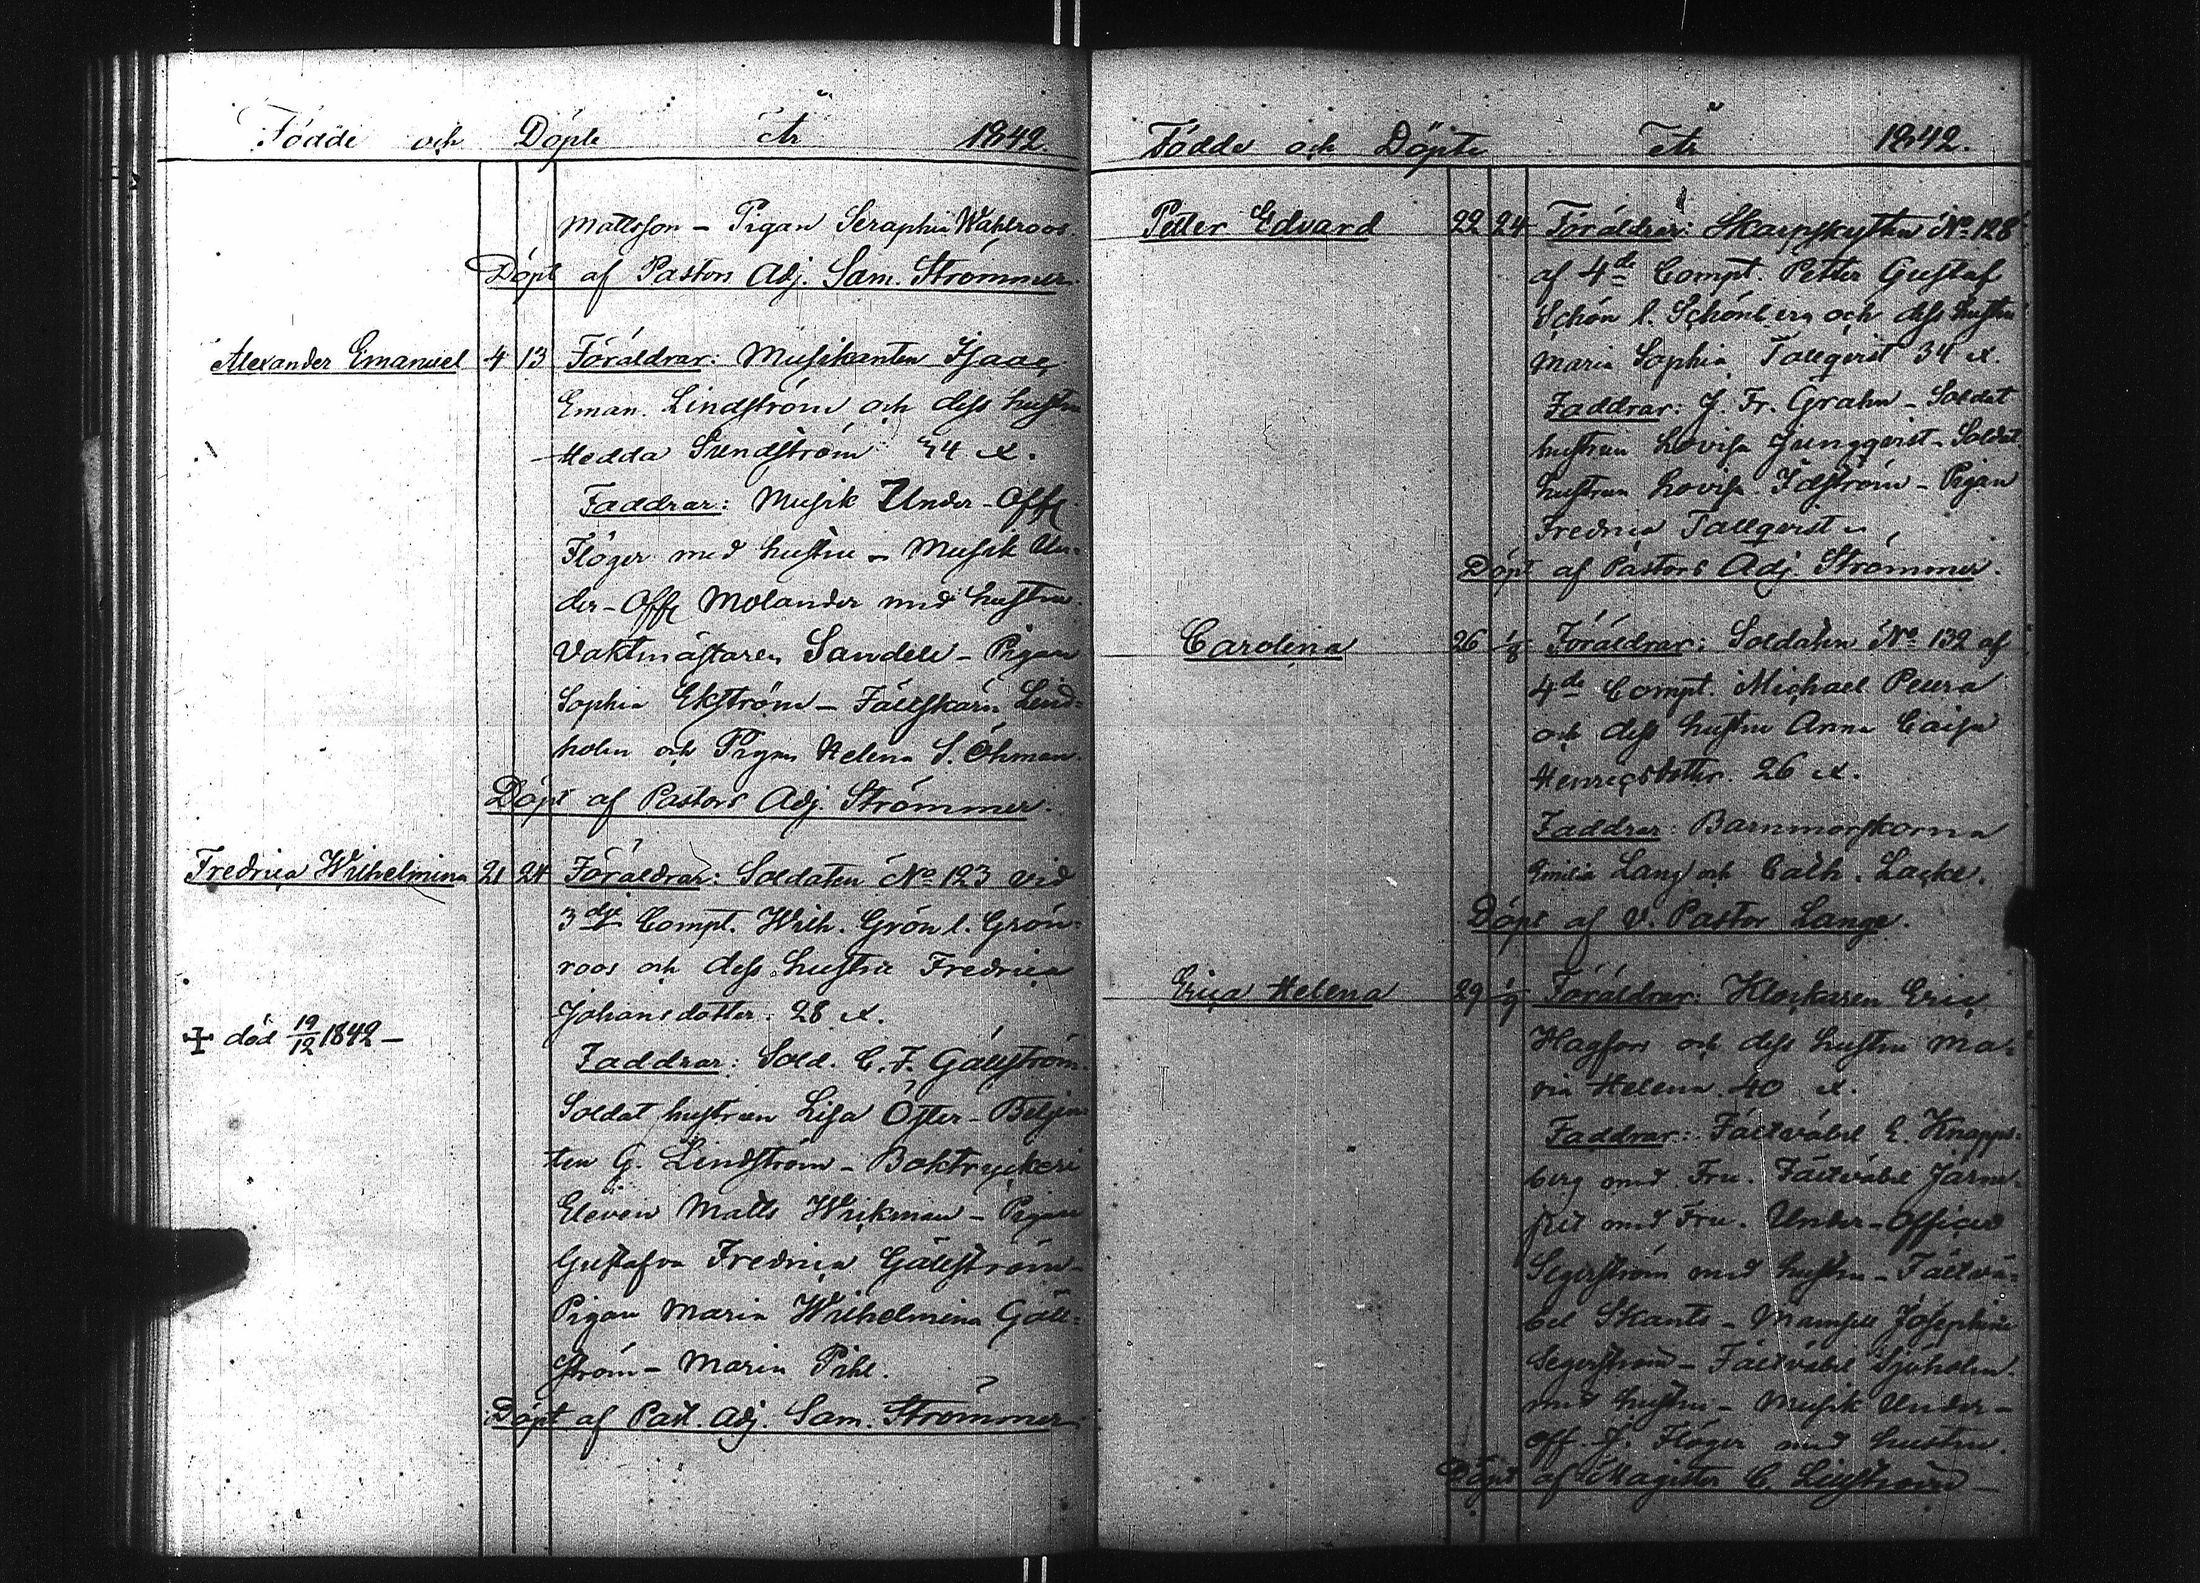 Födde och Döpte År 1842
Mattsson – Pigan Seraphia Wahlroos.
Döpt af Pastors Adj. Sam. Strömmer.
Alexander Emanuel 4 13 Föräldrar: Musikanten Isaac
Eman. Lindström och dess hustru
Hedda Sundström 34 år.
Faddrar: Musik Under-Offc.
Flöger med hustru – Musik Un-
der-Offc Molander med hustru.
Vaktmästaren Sandell – Pigan
Sophia Ekström – Fältskärn Lind-
holm och Pigan Helena S. Öhman.
Döpt af Pastors Adj. Strömmer.
Fredrica Wilhelmina 21 24 Föräldrar: Soldaten No 123 vid
3dje Compt. Wilh. Grön l. Grön-
roos och dess hustru Fredrica
Johansdotter. 28 år.
✝ död 19/12 1842 –
Faddrar: Sold. C. F. Gällström.
Soldat hustrun Lisa Öster – Betjen-
ten G. Lindström – Boktryckeri
Eleven Matts Wikman – Pigan
Gustafva Fredrica Gällström –
Pigan Maria Wilhelmina Gäll-
ström – Maria Pihl.
Döpt af Past. Adj. Sam. Strömmer.
Födde och Döpte År 1842.
Petter Edvard 22 24 Föräldrar: Skarpskytten No 128
af 4de Compt. Petter Gustaf
Schön l. Schönberg och dess hustru
Maria Sophia Tallqvist 34 år.
Faddrar: J. Fr. Grahn – Soldat
hustrun Lovisa Ljungqvist – Soldat
hustrun Lovisa Idström – Pigan
Fredrica Tallqvist –
Döpt af Pastors Adj. Strömmer.
Carolina 26 1/8 Föräldrar: Soldaten No 132 af
4de Compt. Michael Peura
och dess hustru Anna Caisa
Henricsdotter. 26 år.
Faddrar: Barnmorskorna
Emilia Lang och Cath. Lacke.
Döpt af V. Pastor Lange.
Erica Helena 29 1/9 Föräldrar: Klockaren Eric
Hagfors och dess hustru Ma-
ria Helena. 40 år.
Faddrar: Fältväbel E. Knapps-
berg med Fru. Fältväbel Järne-
felt med Fru. Under-Officer
Segerström med hustru – Fältvä-
bel Skants – Mamsell Josephine
Segerström – Fältväbel Sjöholm.
med hustru – Musik Under-
off. J. Flöger med hustru.
Döpt af Magister C. Liljström